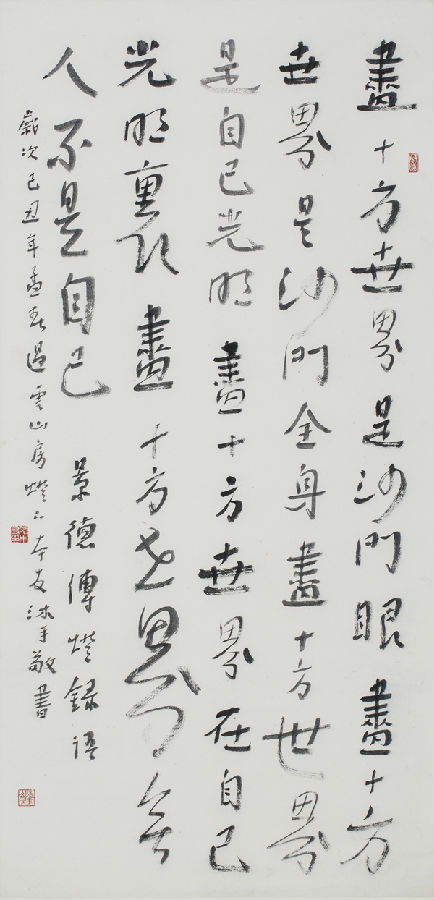 盡十方世界是沙門眼盡十方
世界是沙門全身盡十方世界
是自己光明盡十方世界在自己
光明裏許盡十方世界無
人不是自己
景德傳燈錄語
歲次己丑年孟春過雲山房燈下本友沐手敬書